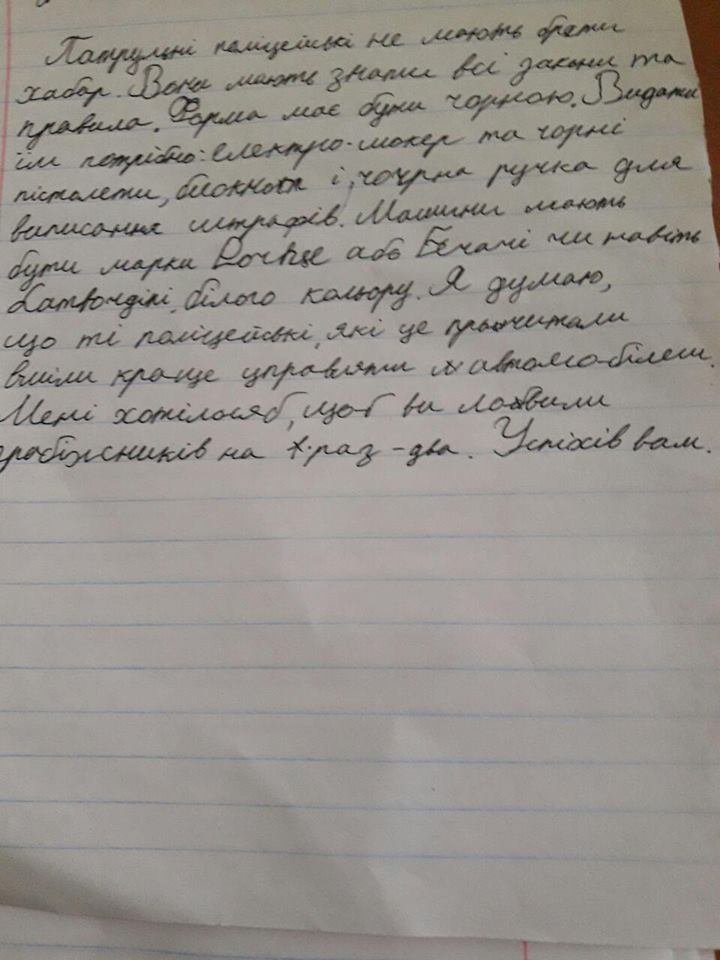 Патрульні поліцейські не мають брати
хабар. Вони мають знати всі закони та
правила. Форма має бути чорною. Видати
їм потрібно: електро-шокер та чорні
пістолети, блокноти і, чорна ручка для
виписання штрафів. Машини мають
бути марки або чи навіть
білого кольору. Я думаю,
що ті поліцейські, які це прочитали
вміли краще управляти автомо-білем.
Мені хотілося б, щоб ви ловили
грабіжників на раз-два. Успіхів вам.